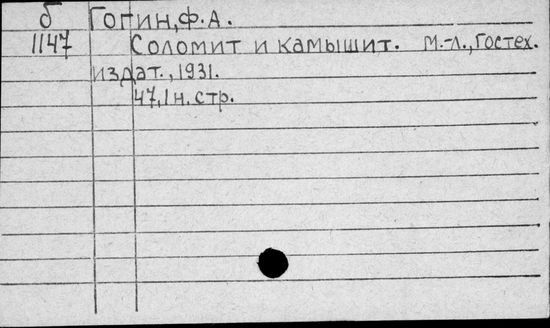 б Гопин, Ф.А.
1147 Соломит и камышит. М.-Л., Гостех.
издат., 1931.
47, 1 н. стр.